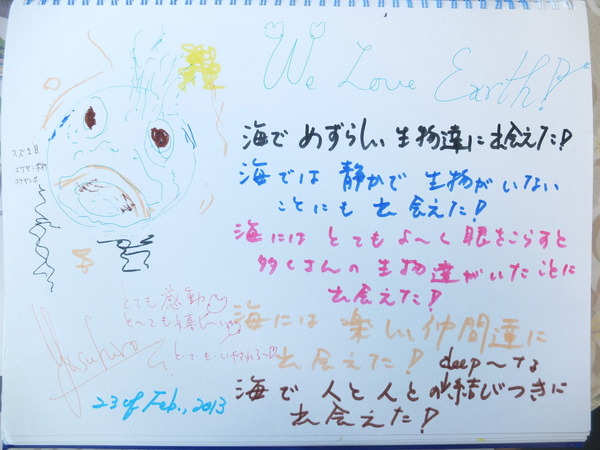 We Love Earth!
海で めずらしい 生物達に出会えた!
海では 静かで 生物がいない
ことにも 出会えた!
海には とても よ〜く 眼をこらすと
多くさんの 生物達がいたことに
出会えた!
海には 楽しい仲間達に
出会えた!
deep〜な
海で 人と人との結びつきに
出会えた!
スズキ目
とても 感動
Yasuhiro
23 of Feb., 2013